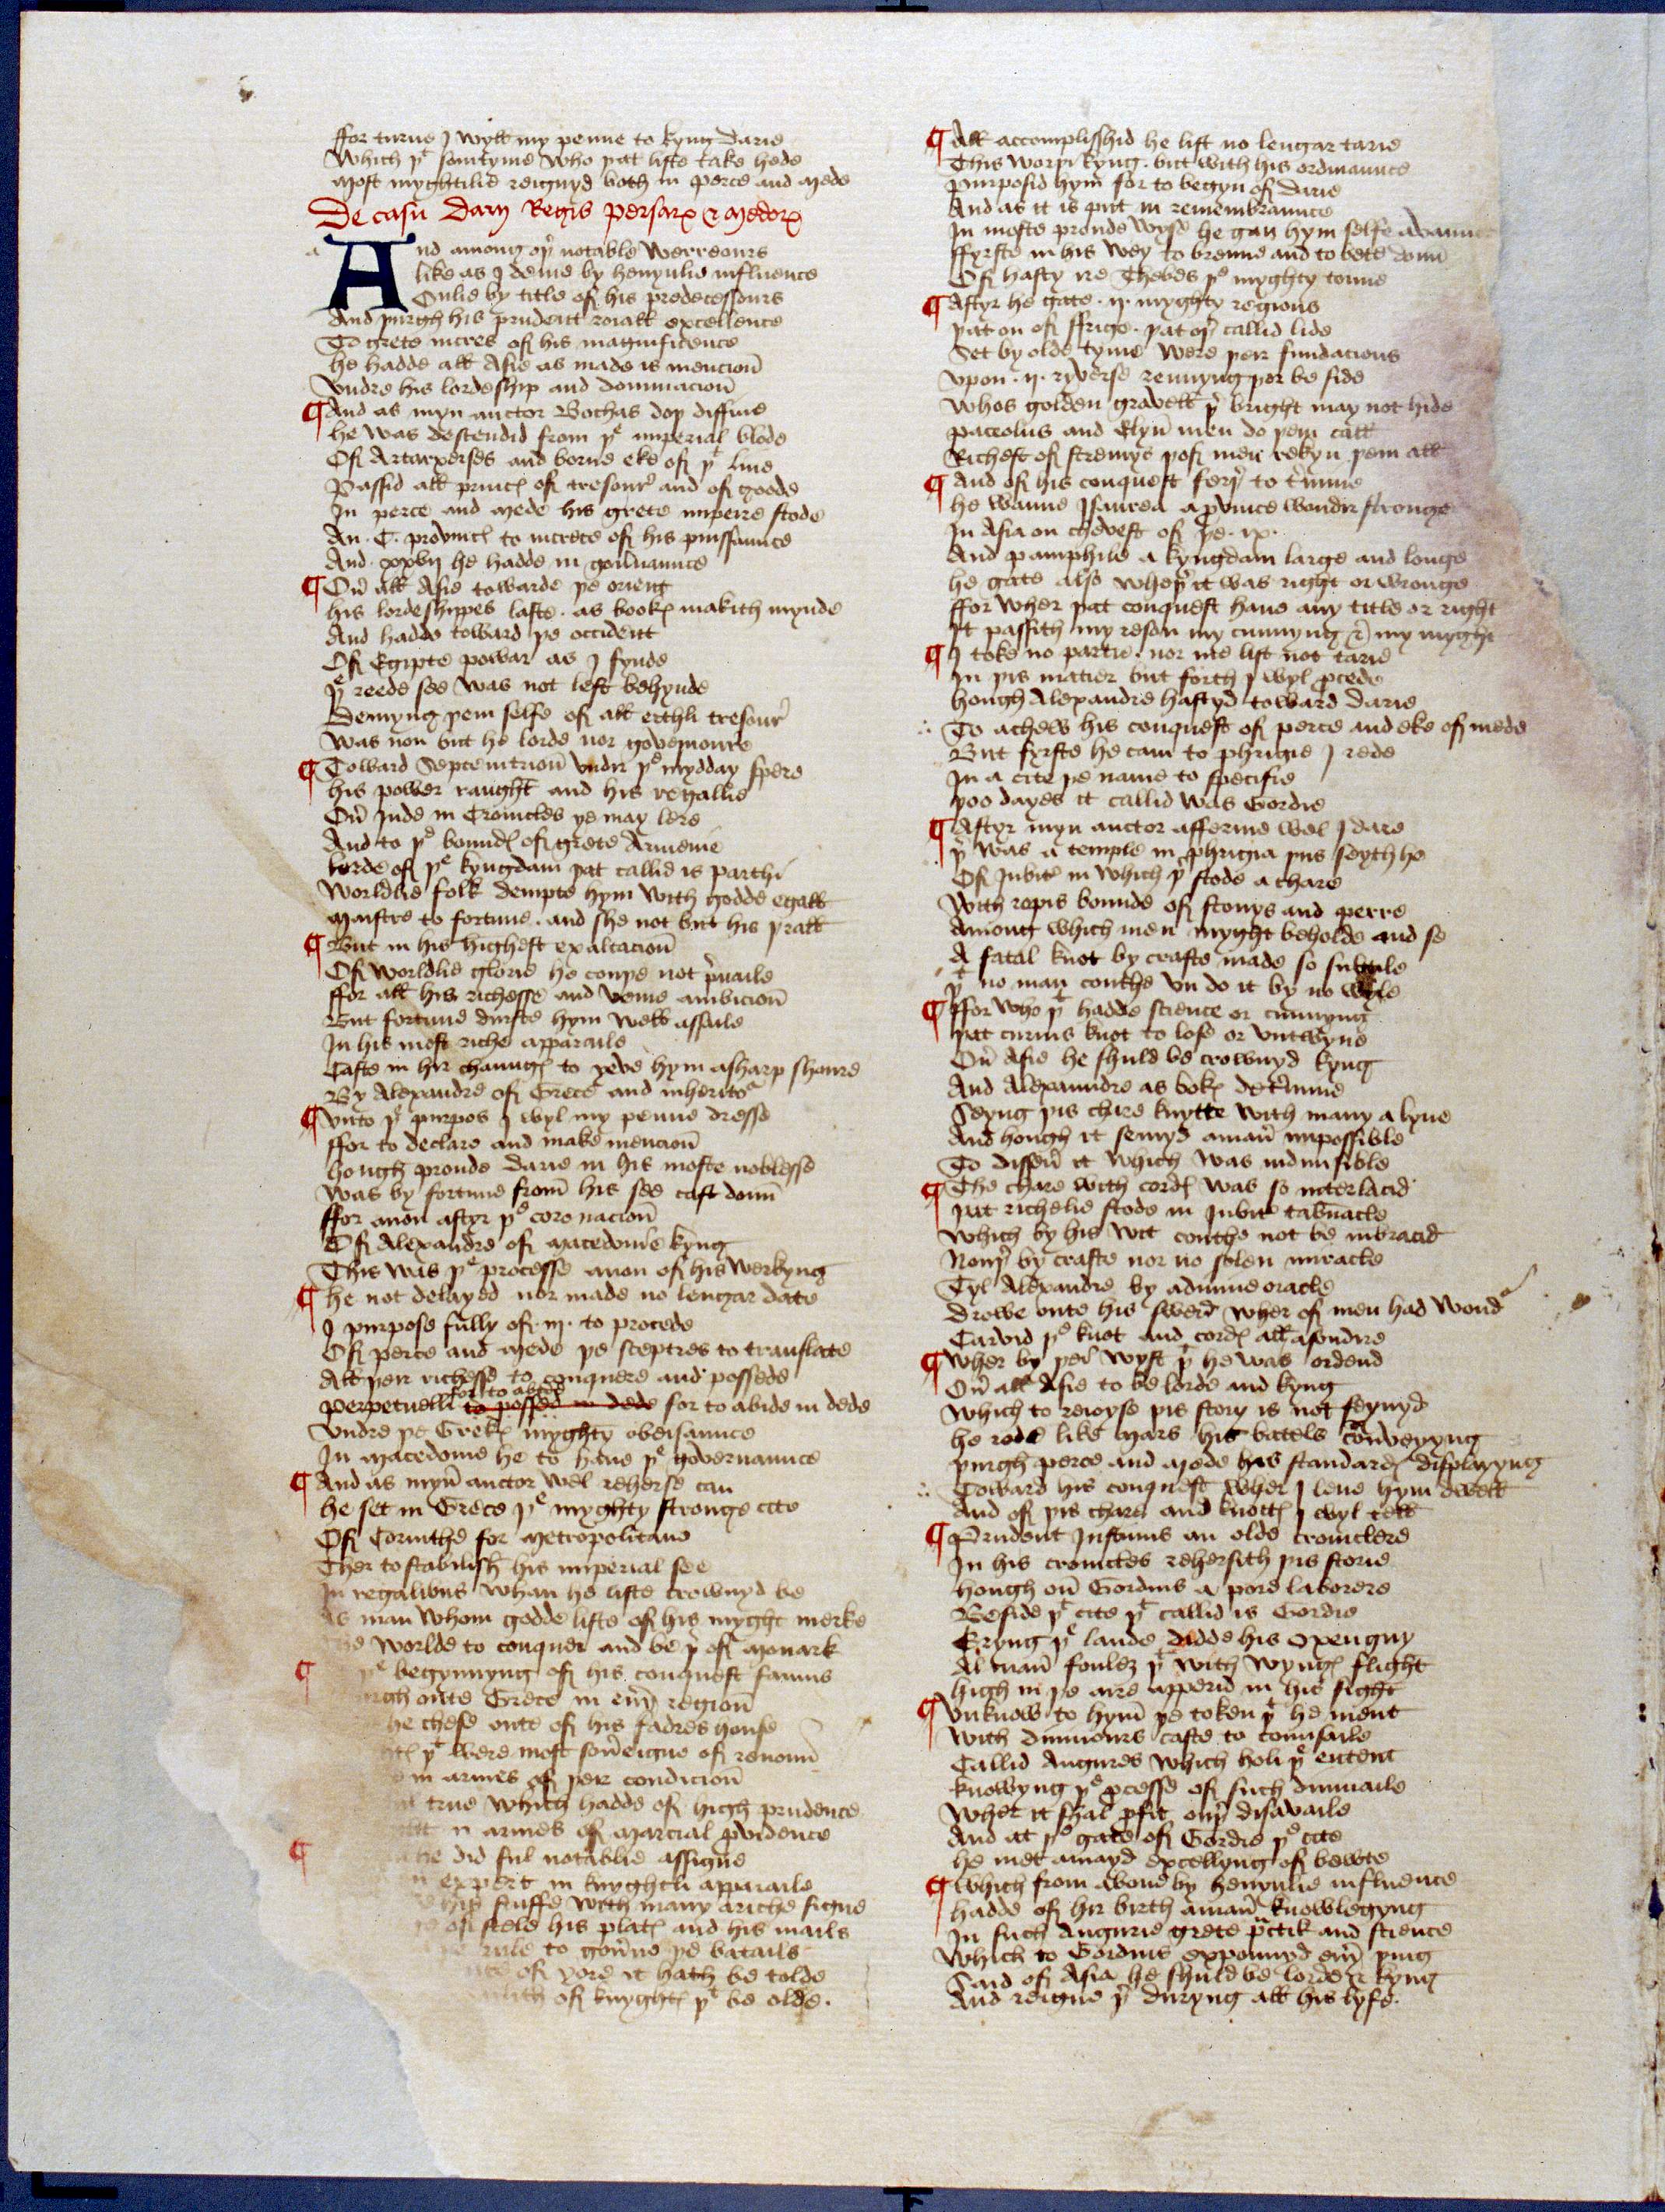 ffor turne I wyll my penne to kyng Darie
Which þt somtyme who þat liste take hede
Most myghtilie reignyd both in Perce and Mede
De casu Darij Regis Persarꝝ & Medorꝝ
And among oþr notable Werreours
like as I deme by hevynlie influence
Onlie by title of his predecessours
And þurgh his prudent roiall excellence
To grete incres of his magnificence
he hadde all Asie as made is mencioū
Vndre his lordeship and dominacioū
¶ And as myn auctor Bochas doþ diffine
he was descendid from þe imperial blode
Of Artarxerses and borne eke of þt line
Passid all princꝭ of tresour and of goode
In Perce and Mede his grete imperre stode
An .C. provincꝭ to increce of his puissaunce
And xxvij he hadde in goūnaunce
¶ Oūr all Asie towarde þe orient
his lordeshippes laste . as bookꝭ makith mynde
And hadde toward þe occident
Of Egipte powar as I fynde
þe reede see was not left behynde
Demyng þem selfe of all erthli tresour
Was non but he lorde nor governoure
¶ Toward Septemtrioū vndir þe mydday spere
his power raught and his regallie
Oūr Inde in Cronicles ye may lere
And to þe boundꝭ of grete Armenie
lorde of þe kyngdam þat callid is Parthi
Worldlie folk dempte hym with godde egall
Maistre to fortune . and she not but his þrall
¶ But in his highest exaltacioū
Of worldlie glorie he couþe not p̄vaile
ffor all his richesse and veine ambicioū
But fortune durste hym well assaile
In his most riche apparaile
Caste in hir chaungꝭ to yeve hym a sharp shoure
By Alexandre of Grece and inheritor
¶ Vnto þt purpos I wyl my penne dresse
ffor to declare and make mencioū
hough proude Darie in his moste noblesse
Was by fortune from his see cast doun
ffor anon aftyr þe coronacioū
Of Alexandre of Macedonie kyng
This was þe processe anon of his werkyng
¶ he not delayed nor made no lengar date
I purpose fully of .iij. to procede
Of Perce and Mede þe sceptres to translate
All þeir richesse to conquere and possede
for to abide
Perpetuelli to possed in dede for to abide in dede
Vndre þe Grekꝭ myghty obeisaunce
In Macedonie he to have þe governaunce
¶ And as myn auctor wel reherse can
he set in Grece þe myghty stronge cite
Of Corinthe for Metropolitane
Ther to stabilish his imperial see
In regalious whan he liste crownyd be
As man whom godde liste of his myght merke
worlde to conquer and be þr of Monark
¶ þe begynnyng of his conquest famus
oute Grece in eūy regioū
he chese oute of his fadres house
þt were most soūeigne of renoun
in armes of þeir condicioū
true which hadde of high prudence
in armes of Marcial pvidence
¶ he did ful notablie assigne
expert in knyghtli apparaile
stuffe with many a riche signe
of stele his platꝭ and his mails
rule to goūne þe batails
of yore it hath be tolde
of knyghtꝭ þt be olde .
¶ All accomplisshid he list no lengar tarie
This worþi kyng . but with his ordinaunce
Purposid hym for to begyn of Darie
And as it is put in remembraunce
In moste proude wyse he gan hym selfe avaunce
ffyrste in his wey to brenne and to bete doun
Of hasty ire Thebes þe myghty toune
¶ Aftyr he gate .ij. myghty regions
þat on of ffrige . þat oþr callid lide
Set by olde tyme were þeir fundacions
vpon .ij. ryverse rennyng þer be side
Whos golden gravell þr bright may not hide
Paccolus and Elyn men do þem call
Richest of stremys þof men rekyn þem all
¶ And of his conquest ferþr to t'mine
he wanne Isaurea a pvince wondir stronge
In Asia on chevest of þe .ix.
And Pamphile a kyngdam large and longe
he gate also wheþr it was right or wronge
ffor wher þat conquest have any title or right
It passith my reson my cunnyng & my myght
¶ I toke no partie . nor me list not tarie
In þis matier but forth I wyl pcede
hough Alexandre hastyd toward Darie
To achew his conquest of Perce and eke of Mede
But fyrste he cam to Phrigie I rede
In a cite þe name to specifie
þoo dayes it callid was Gordie
¶ Aftyr myn auctor afferme wel I dare
þr was a temple in Phrigia þus seyth he
Of Jubiter in which þr stode a chare
With ropis bounde of stonys and perre
Among which men myght beholde and se
A fatal knot by crafte made so subtile
þt no man couthe vn do it by no wyle
¶ ffor who þt hadde science or cunnyng
þat curius knot to lose or vntwyne
Oūr Asie he shuld be crownyd kyng
And Alexaundre as bokꝭ det'mine
Seyng þis chare knytte with many a lyne
And hough it semyd a maner impossible
To disseūr it which was indivisible
¶ The chare with cordꝭ was so interlacid
þat richelie stode in Jubiter tab'nacle
Which by his wit couthe not be inbracid
Nouþr by crafte nor no solen miracle
Tyl Alexandre by a divine oracle
Drowe oute his swerd wher of men had wondr
Carvid þe knot and cordꝭ all asondre
¶ Wher by þei wyst þt he was ordend
Oūr all Asie to be lorde and kyng
Which to reioyse þis story is not feynyd
he rode like Mars his batels conveyyng
þurgh Perce and Mede his standardꝭ displayyng
Toward his conquest wher I leve hym dwell
And of þis chare and knottꝭ I wyl tell
¶ Prudent Justinus an olde croniclere
In his cronicles rehersith þis storie
hough on Gordius a pore laborere
Beside þt cite þt callid is Gordie
Eryng þe lande didde his open guy
Al maner foulez þt with wyngꝭ flight
high in þe aire apperid in his sight
¶ Vnknow to hym þe token þt he ment
With diviniours caste to counsaile
Callid Augures which holi þe entent
knowyng þe pcesse of such divinaile
Wher it shal pfit ouþr disavaile
And at þe gate of Gordie þe cite
he met a mayd excellyng of bewte
¶ Which from above by hevynlie influence
hadde of hir birth a maner knowlegyng
In such Augurie grete practik and science
Which to Gordius expounyd eūy þing
Said of Asia he shuld be lorde & kyng
And reigne þr duryng all his lyfe.